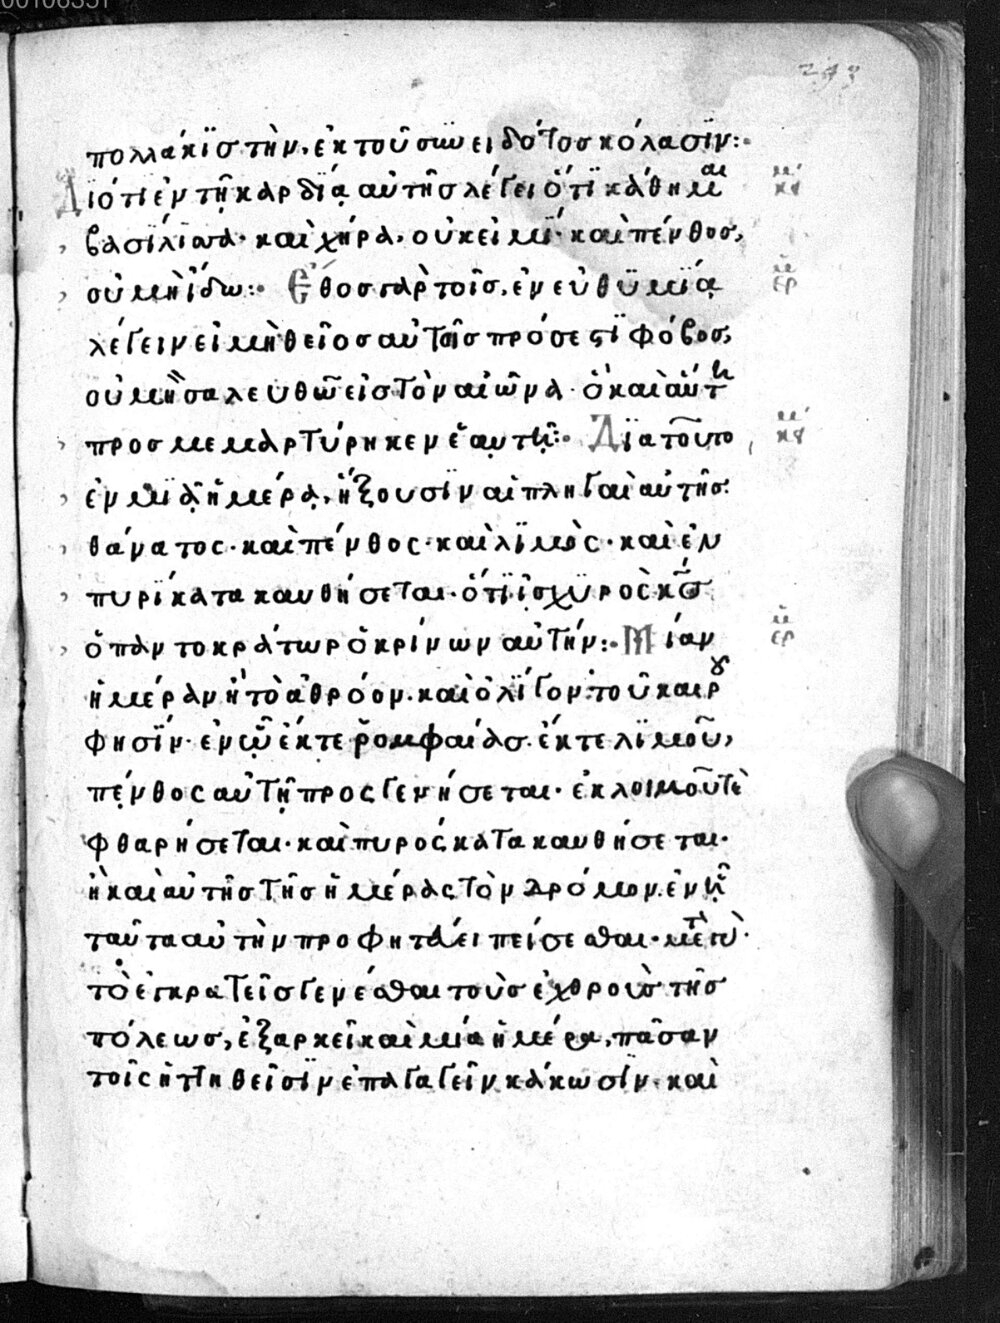 00106351
293
πολλάκϊσ τὴν, ἐκ τοῦ σῶν ειδότοσ κόλασϊν:·
Διότι ἐν τῆ καρδΐα αὐτῆσ λέγει ὅτϊ κάθημαι κει
βασΐλισσα· καὶ χήρα, οὐκ εἰμΐ· καὶ πένθοσ,
οὐ μὴ ἴδω:· Ἔθοσ γὰρ τοῖσ, ἐν εὐθϋμΐα ερ
λέγειν εἰ μὴ θεῖοσ αὐτοῖσ πρόσεστϊ φόβοσ,
οὐ μὴ σαλευθῶ εἰσ τὸν αἰῶνα· ὃ καὶ αὐτη
προσμεμαρτύρηκεν ἑαυτῆ:· Διατοῦτο κει
ἐν μιᾶ ἡμέρα, ἥξουσϊν αἱ πληγαὶ αὐτῆσ·
θάνατος· καὶ πένθος· καὶ λϊμὸς· καὶ ἐν
πυρὶ κατακαυθήσεται· ὅτϊ ἰσχϋρὸς κσ
ὁ παντοκράτωρ ὁ κρίνων αὐτήν:· Μίαν ερ
ἡμέραν ἢ τὸ ἀθρόον· καὶ ὀλΐγον τοῦ καιρου
φησϊν· ἐν ὧ ἔκ τε ῥομφαίας· ἔκ τε λϊμοῦ,
πένθος αὐτῆ προσγενήσεται· ἐκ λοιμοῦ τὲ
φθαρήσεται· καὶ πυρὸς κατακαυθήσεται·
ἢ καὶ αὐτῆσ τῆσ ἡμέρας τὸν δρόμον. ἐν ἧ
ταῦτα αὐτὴν προφητάει πείσεσθαι· μετὰ
τὸ ἐγκρατεῖσ γενέσθαι τοὺσ ἐχθροὺσ τῆσ
πόλεωσ, ἐξαρκεῖ καὶ μία ἡμέρα, πᾶσαν
τοῖς ἡττηθεῖσϊν ἐπαγαγεῖν κάκωσϊν· καὶ